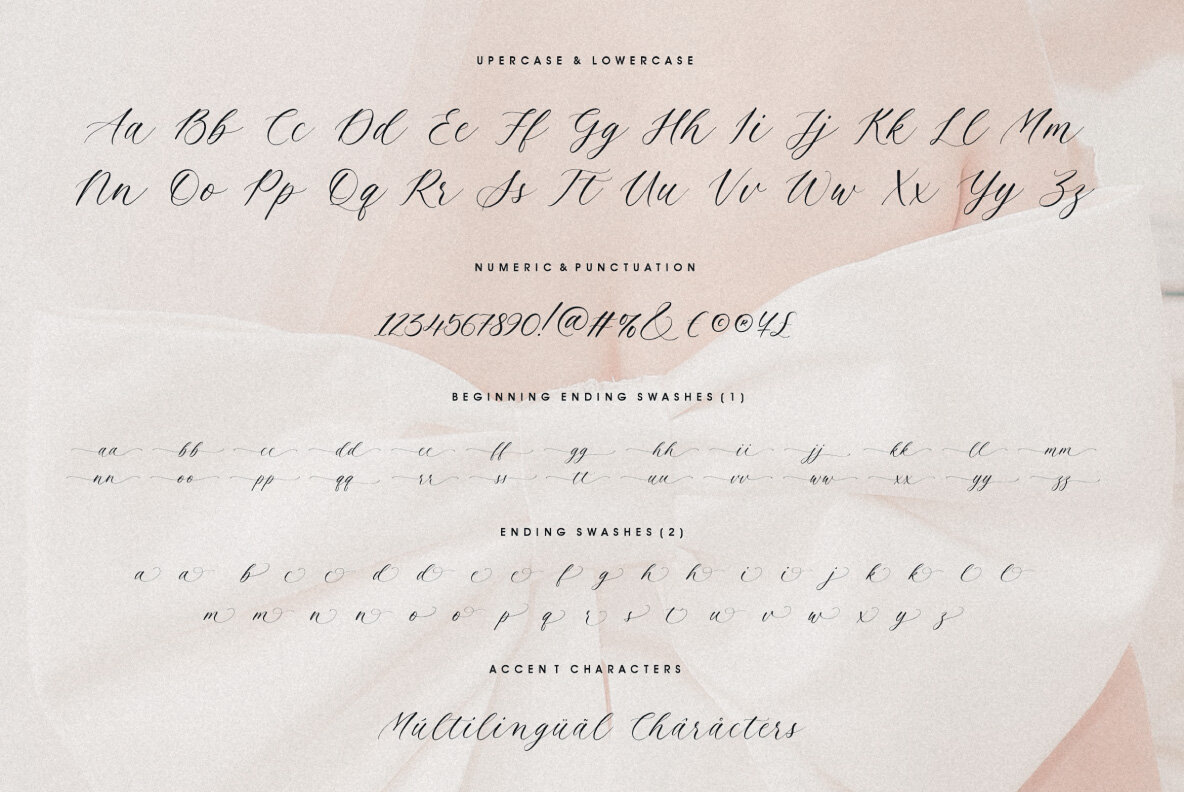 UPERCASE & LOWERCASE
Aa Bb Cc Dd Ee Ff Gg Hh Ii Jj Kk Ll Mm
Nn Oo Pp Qq Rr Ss Tt Uu Vv Ww Xx Yy Zz
NUMERIC & PUNCTUATION
1234567890!@#%& ( ©®¥£
BEGINNING ENDING SWASHES (1)
aa bb cc dd ee ff gg hh ii jj kk ll mm
nn oo pp qq rr ss tt uu vv ww xx yy zz
ENDING SWASHES (2)
a a b c c d d e e f g h h i i j k k l l
m m n n o o p q r s t u v w x y z
ACCENT CHARACTERS
Múltilingüãl Chäråcters